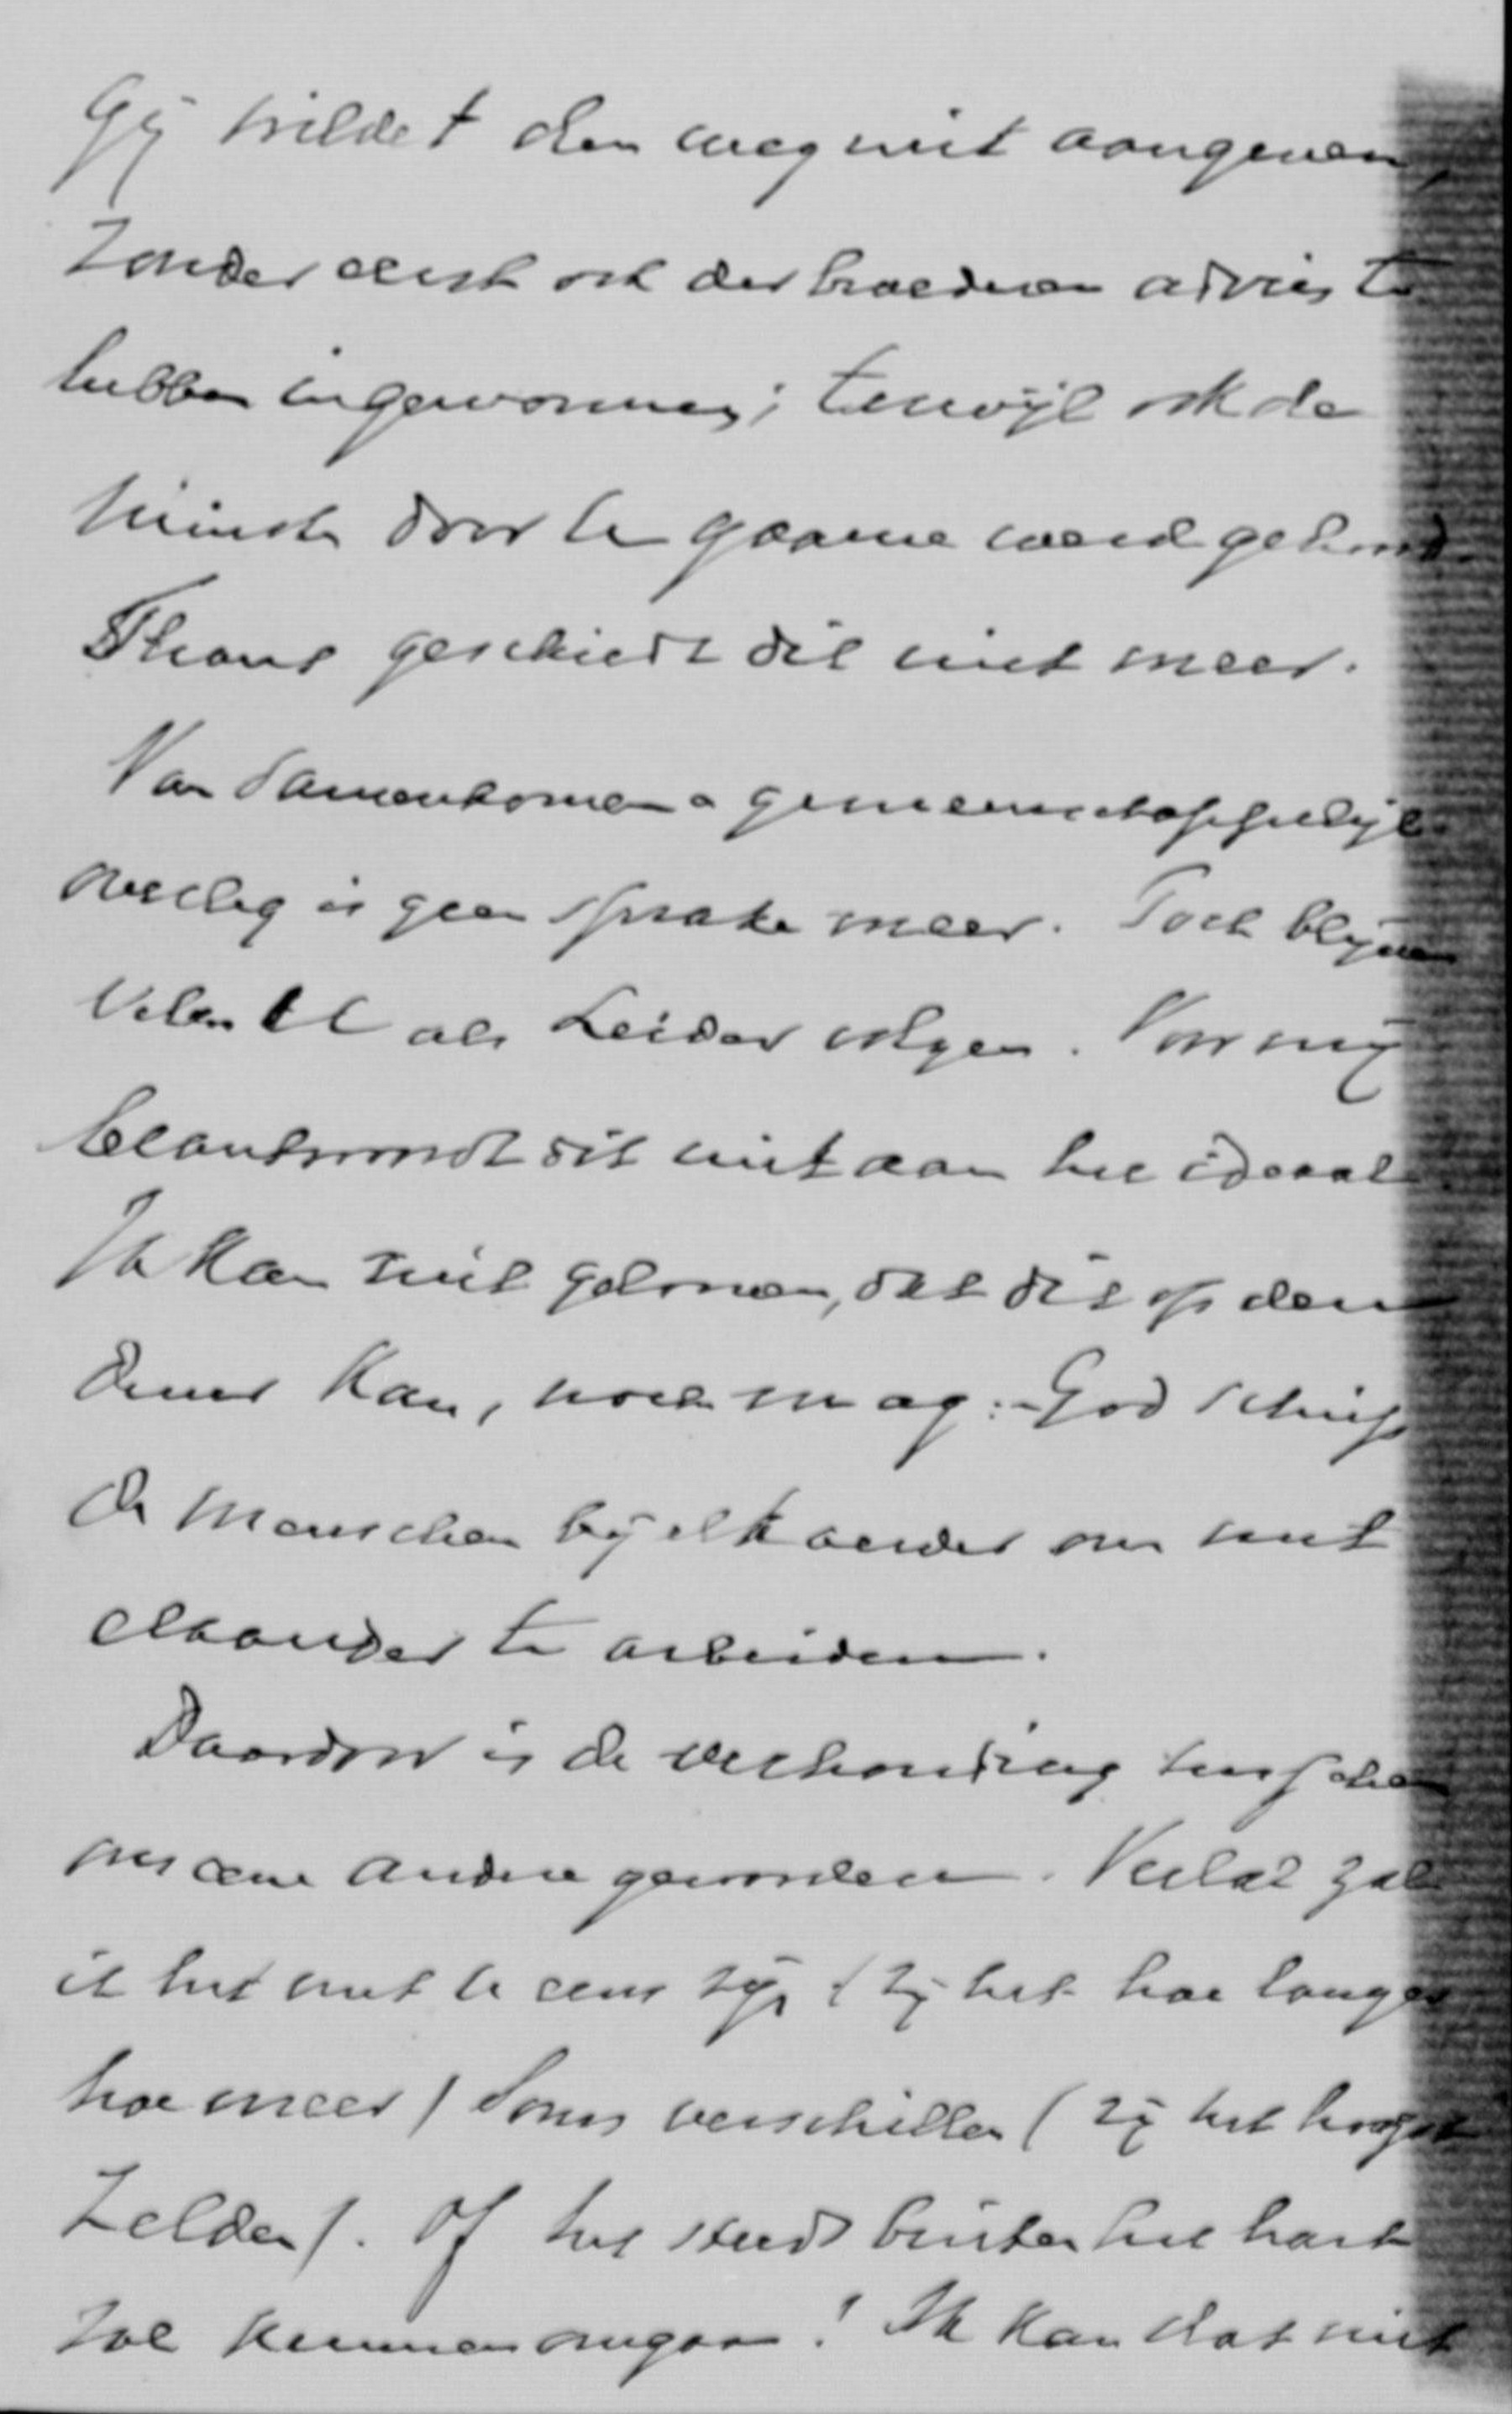 Gij wildet den weg niet aangeven,
zonder eerst ook der broederen advies te
hebben ingewonnen; terwijl ook de
minste door U gaarne werd gehoord.
Thans geschiedt dit niet meer.
Van samenkomen a gemeenschappelijk
overleg is geen sprake meer. Toch blijven
velen U als Leider volgen. Voor mij
beantwoordt dit niet aan het ideaal
Ik kan niet gelooven, dat dit op den
duur kan, noch mag: God schiep
de menschen bij elkander om met
elkander te arbeiden.
Daardoor is de verhouding tusschen
ons eene andere geworden. Veelal zal
ik het met U eens zijn (zij het hoe langer
hoe meer) soms verschillen (zij het hoogst
zelden). Of het steeds buiten het hart
zal kunnen omgaan! Ik kan dat niet